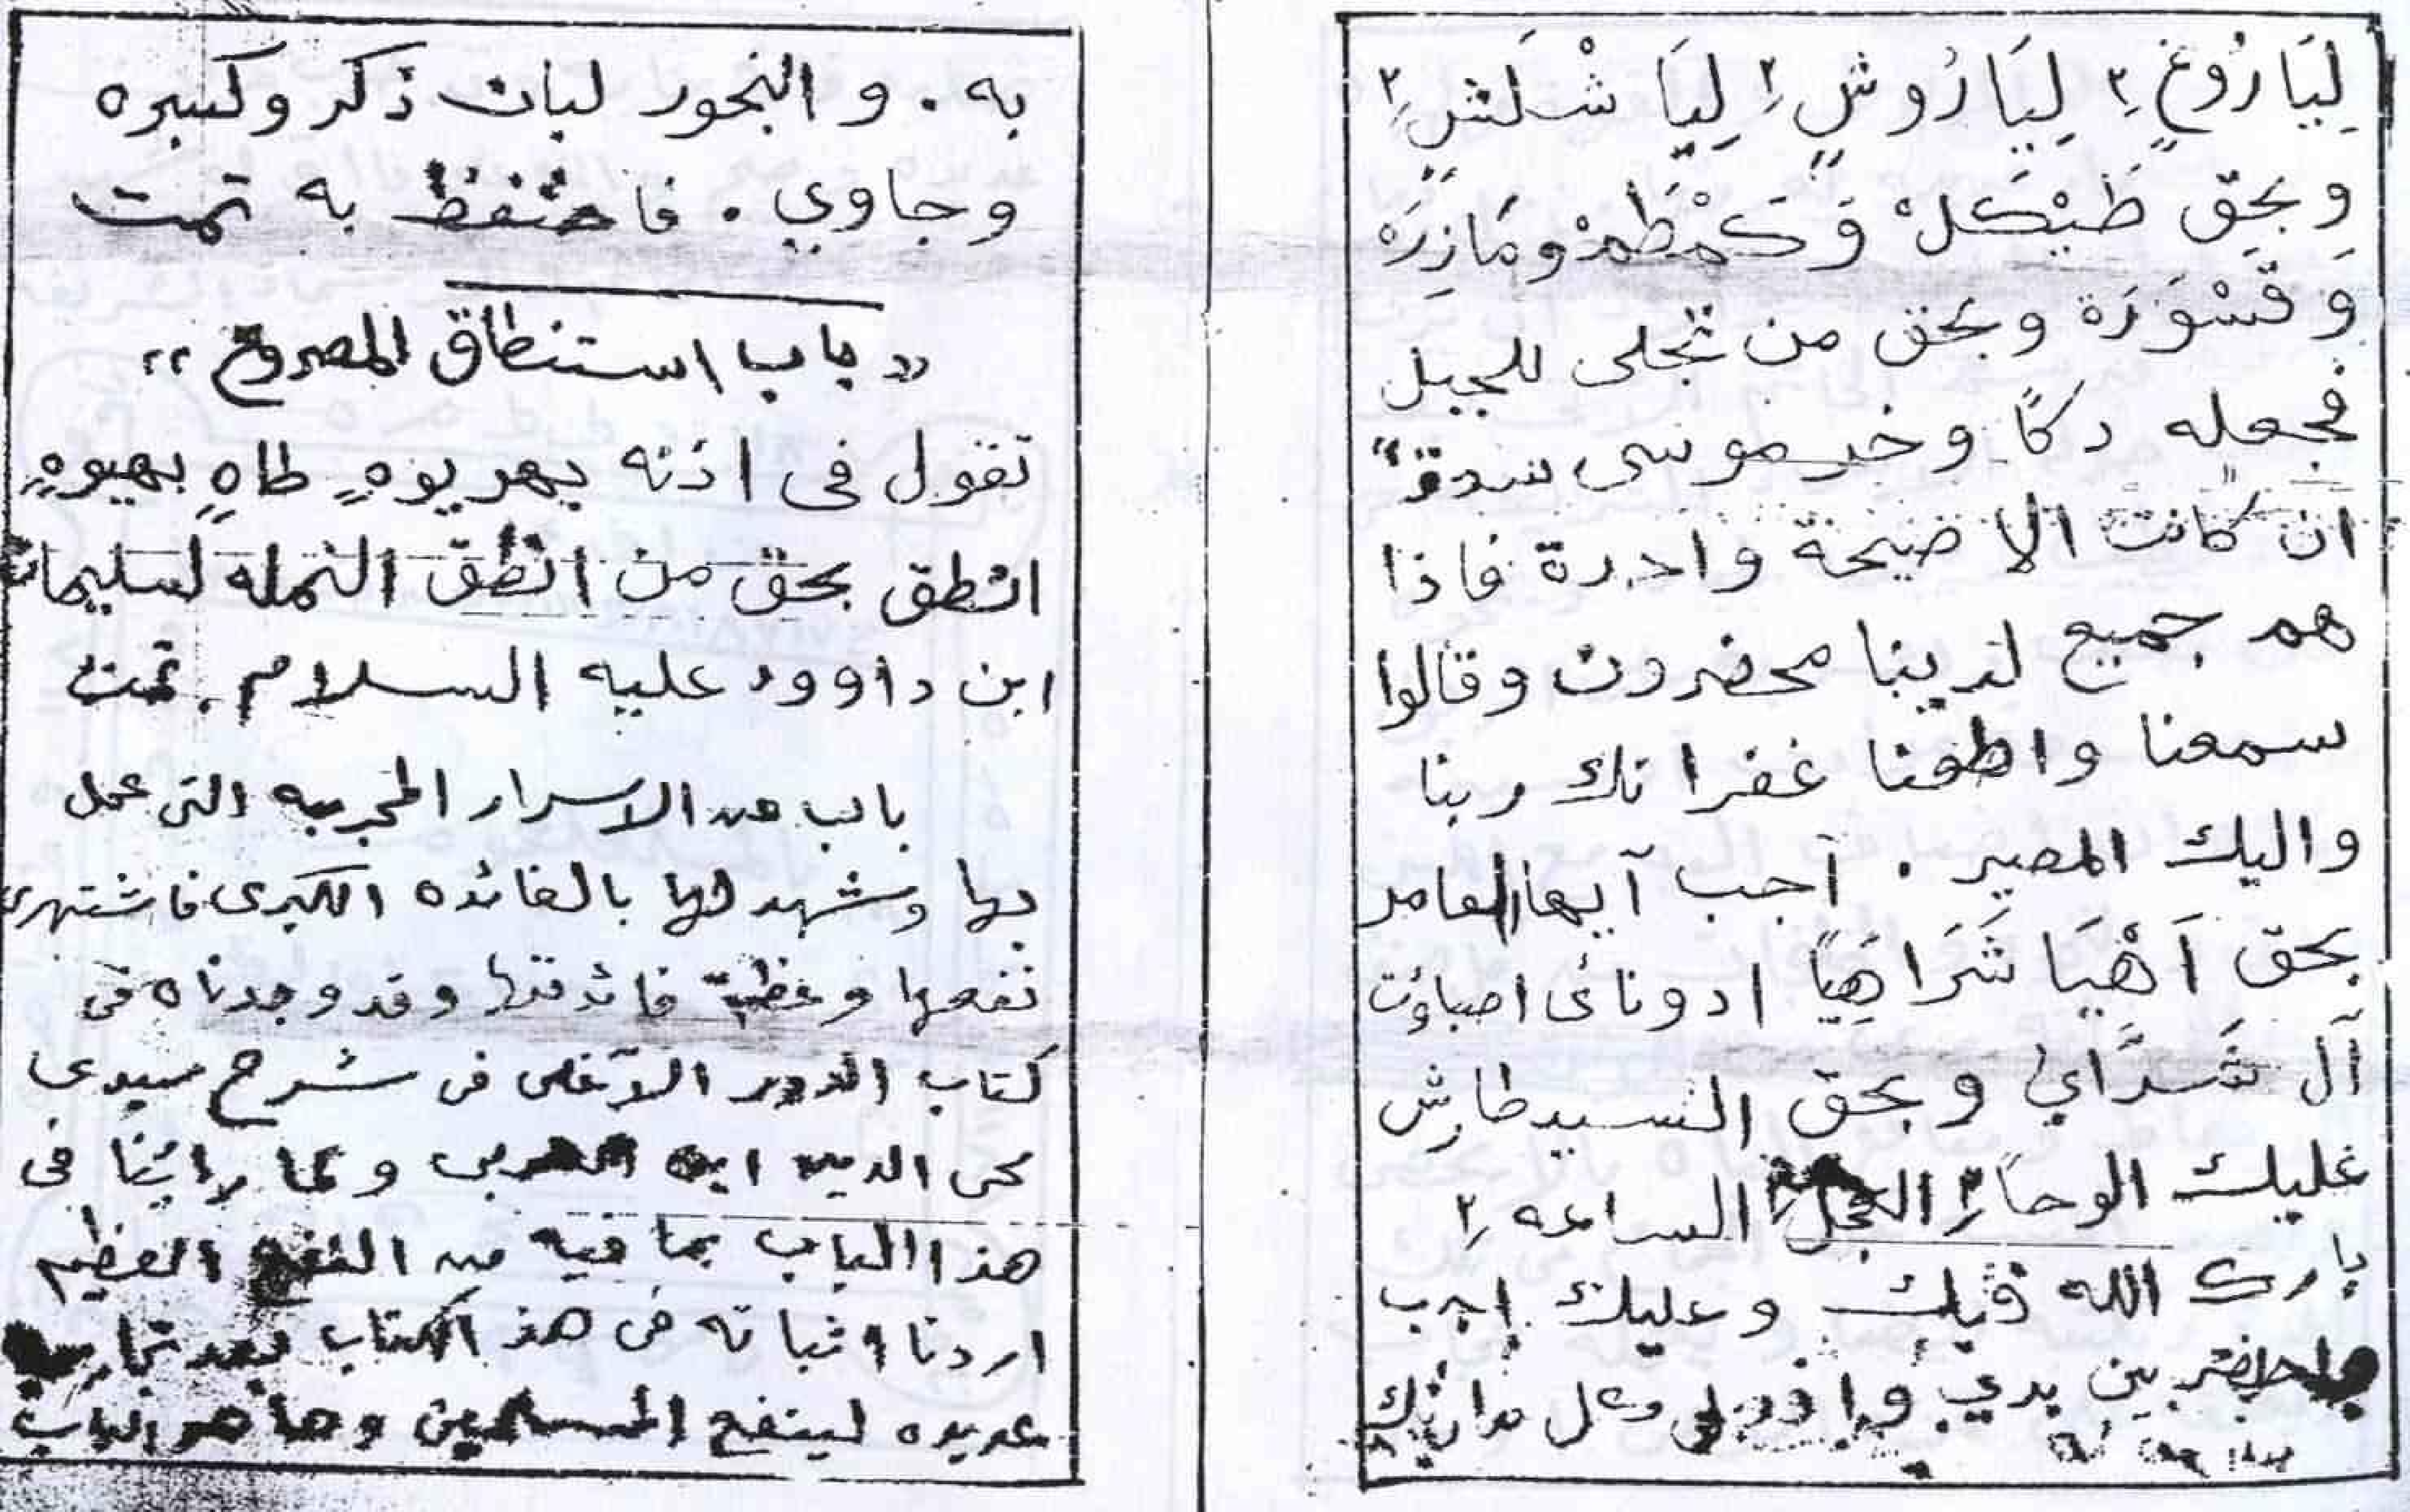 لِيَارُوغٍ ٢ لِيَارُوشٍ ٢ لِيَا شْلَشٍ ٢
وبحق طَيْكَلْ وَكَمْطَمْ ومَازِرَهْ
وَقَسْوَرَة وبحق من تجلى للجبل
فجعله دكاً وخر موسى
ان كانت الا ضيحة واحدة فاذا
هم جميع لدينا محضرون وقالوا
سمعنا واطعنا غفرانك ربنا
واليك المصير . آجب آيها العامر
بحق اَهْيَا شَرَاهِيَّا ادوناى اصباؤت
آل شَدَّاي وبحق السيد طارش
عليك الوحا ٢ العجل الساعه ٢
بارك الله فيك وعليك اجب
واحضر بين يدي
به . و البخور لبان ذكر وكسبره
وجاوي . فاحتفظ به تمت
« باب استنطاق المصروع »
تقول فى اذنه يهديوهٍ طاهٍ بهيوهٍ
انطق بحق من انطق النمله لسليمان
ابن داوود عليه السلام . تمت
باب من الاسرار المجربه التى عمل
بها وشهد لها بالفائده الكبرى فاشتهرى
نفعها وعظمة فائدتها وقد وجدناه فى
كتاب الدور الآعلى فى شرح سيدى
محى الدين ابن العربى ولما رائينا فى
هذا الباب بما فيه من النفع العظيم
اردنا اثباته فى هذ الكتاب بعد تجارب
عديده لينفع المسلمين وها هو الباب